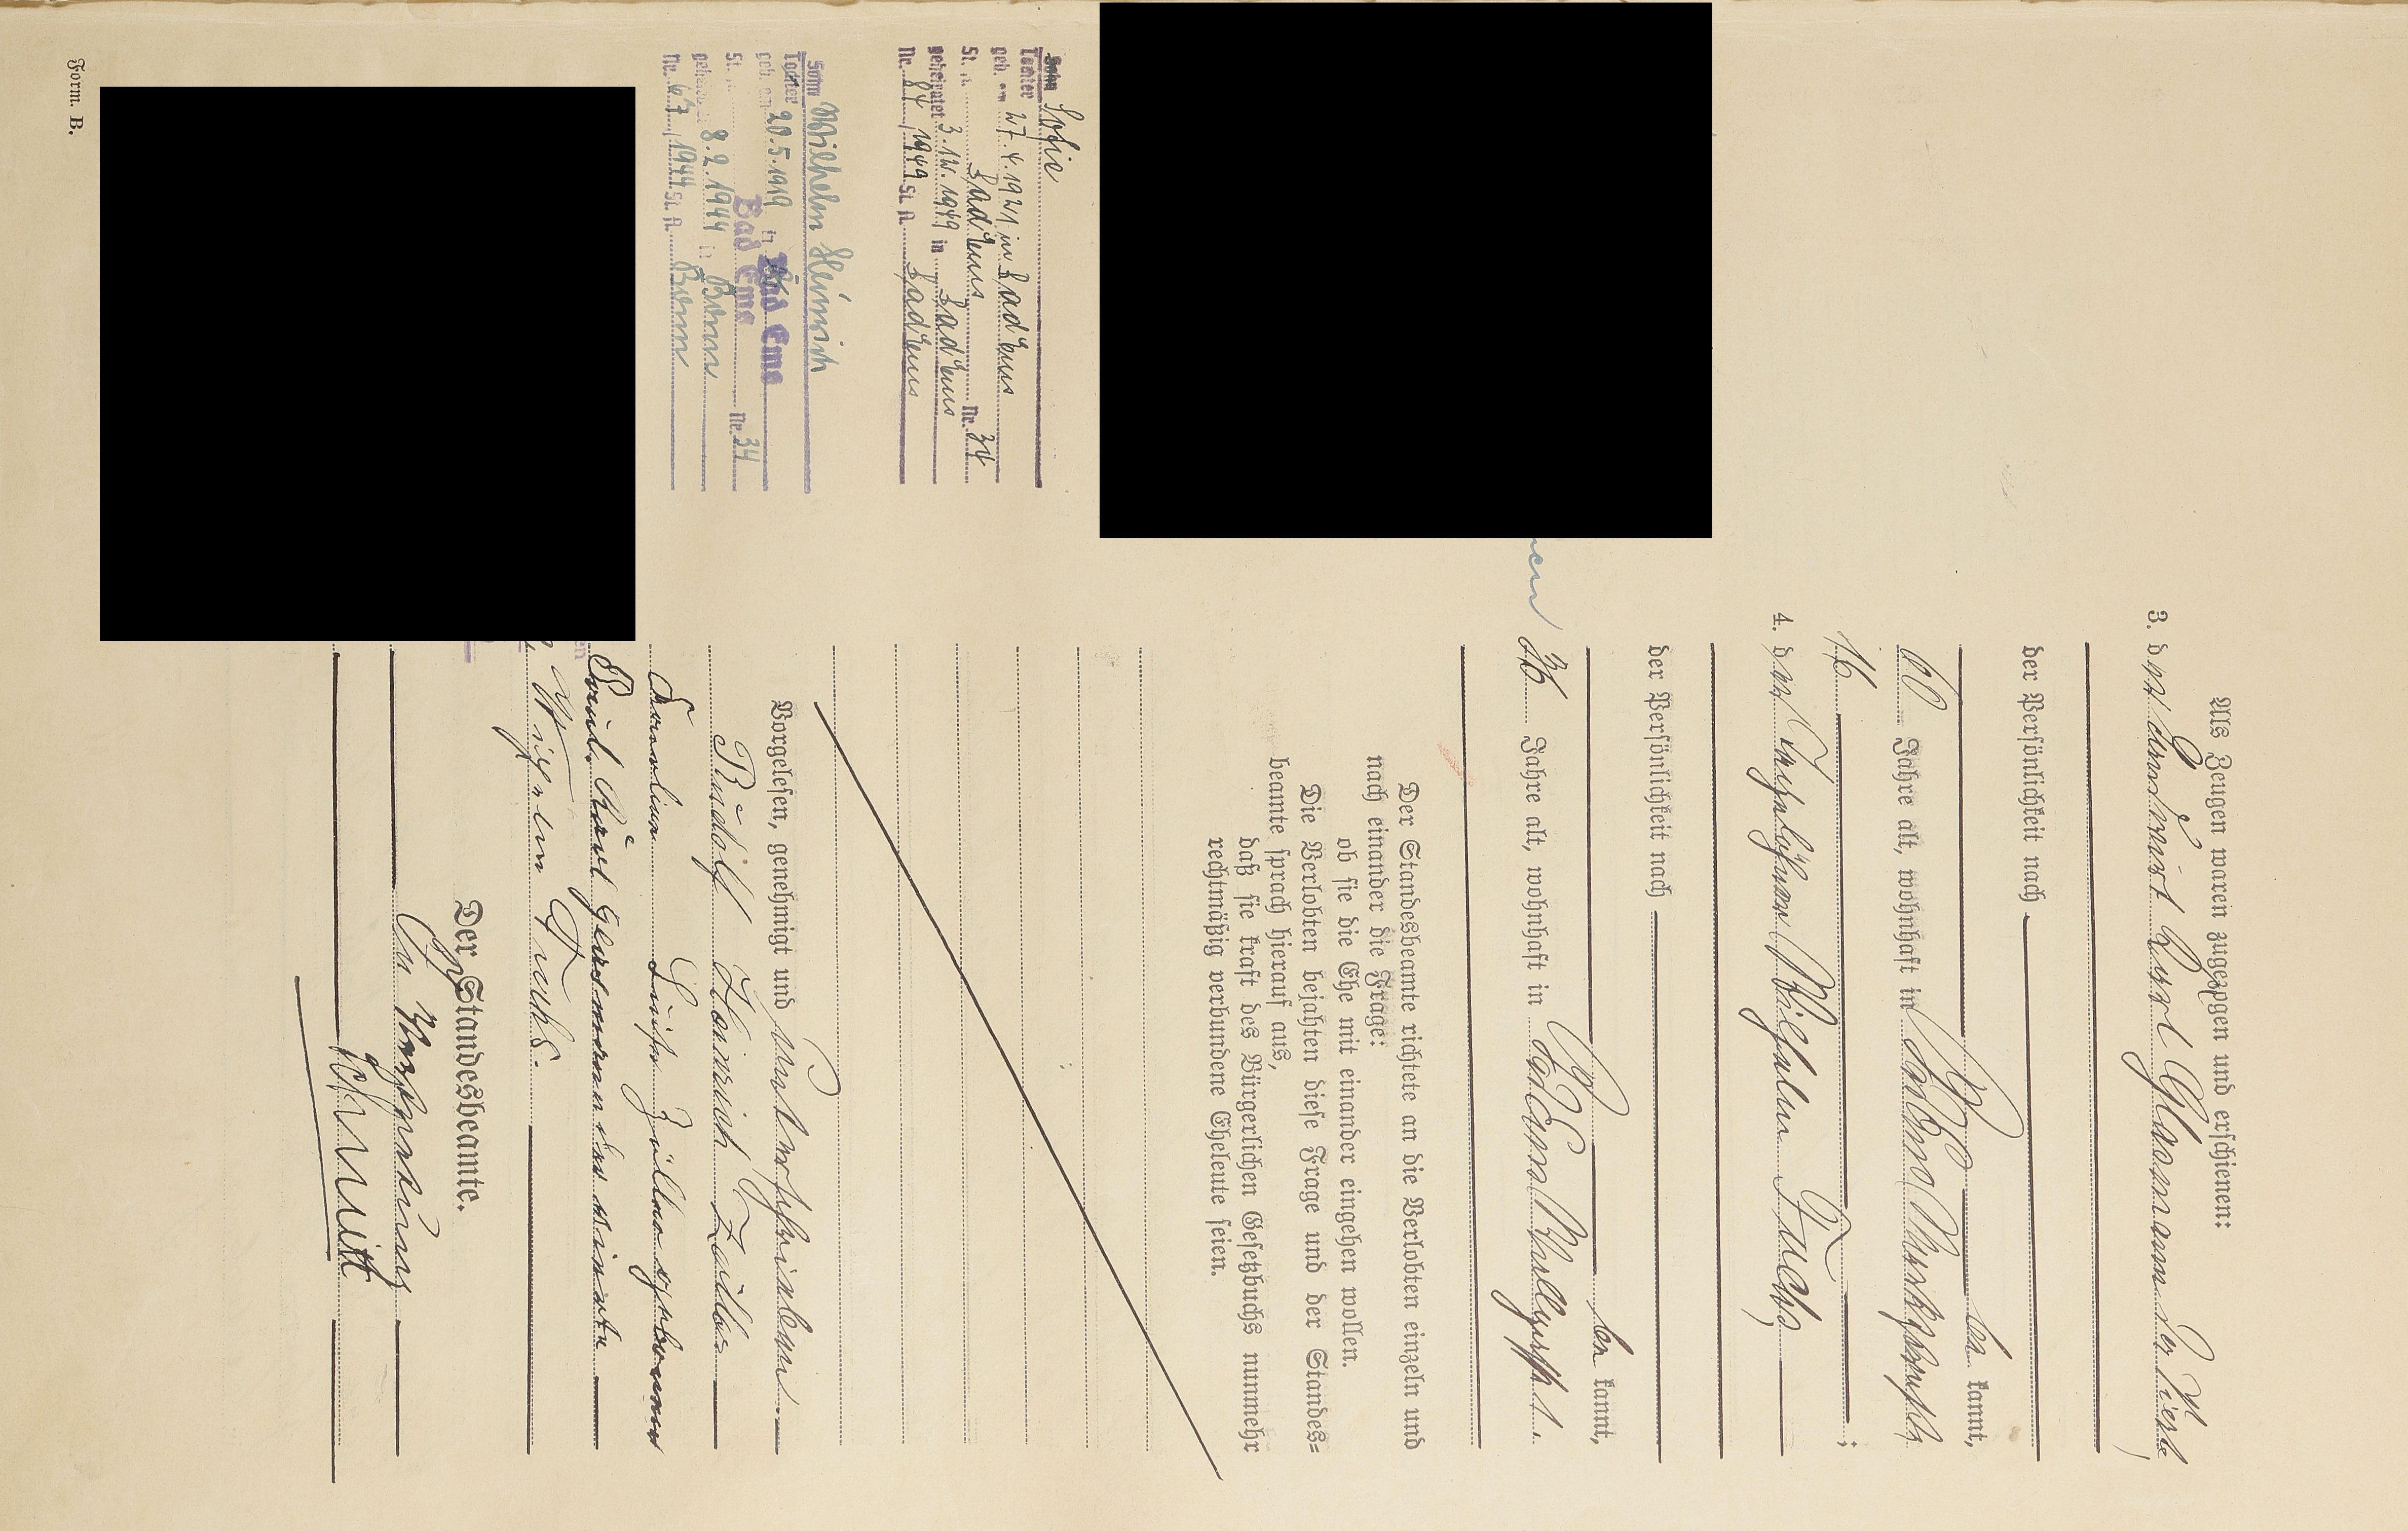 Als Zeugen waren zugezogen und erschienen:
3. der Gastwirt Carl Glasmann der Vierte
der Persönlichkeit nach
bekannt,
60 Jahre alt, wohnhaft in Bad Ems
16;
4. der Taglöhner Wilhelm Fuchs,
der Persönlichkeit nach
bekannt,
36 Jahre alt, wohnhaft in Bad Ems 1.
Der Standesbeamte richtete an die Verlobten einzeln und
nach einander die Frage:
ob sie die Ehe mit einander eingehen wollen.
Die Verlobten bejahten diese Frage und der Standes=
beamte sprach hierauf aus,
daß sie kraft des Bürgerlichen Gesetzbuchs nunmehr
rechtmäßig verbundene Eheleute seien.
Vorgelesen, genehmigt und unterschrieben.
Rudolf Heinrich
Karoline Luise geborenen
Carl Glasmann der vierte
Wilhelm Fuchs.
Der Standesbeamte.
In Vertretung
Schmitt
Sohn
Tochter Sofie
geb. am 27.4.1921 in Bad Ems
St. A. Bad Ems Nr. 34
geheiratet 3.12.1949 in Bad Ems
Nr. 84/1949 St. A. Bad Ems
Sohn
Tochter Wilhelm Heinrich
geb. am 20.5.1919 in Bad Ems
St. A. Bad Ems Nr. 34
geheiratet 8.2.1944 in Bonn
Nr. 67/1944 St. A. Bonn
Form. B.